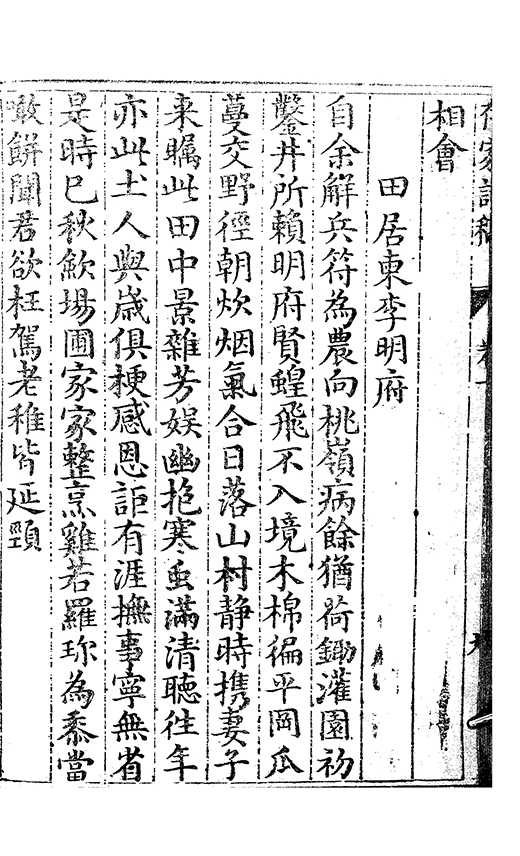 相會
田居柬李明府
自余解兵符為農向桃嶺病餘猶荷鋤灌園初
鑿井所賴明府賢蝗飛不入境木棉徧平岡瓜
蔓交野徑朝炊烟氣合日落山村静時携妻子
来矚此田中景雜芳娱幽抱寒虫滿清聽往年
亦此土人與歲俱梗感恩詎有涯撫事寧無省
是時已秋歛場圃家家整烹雞若羅珎為黍當
噉餅聞君欲枉駕老稚皆延頸